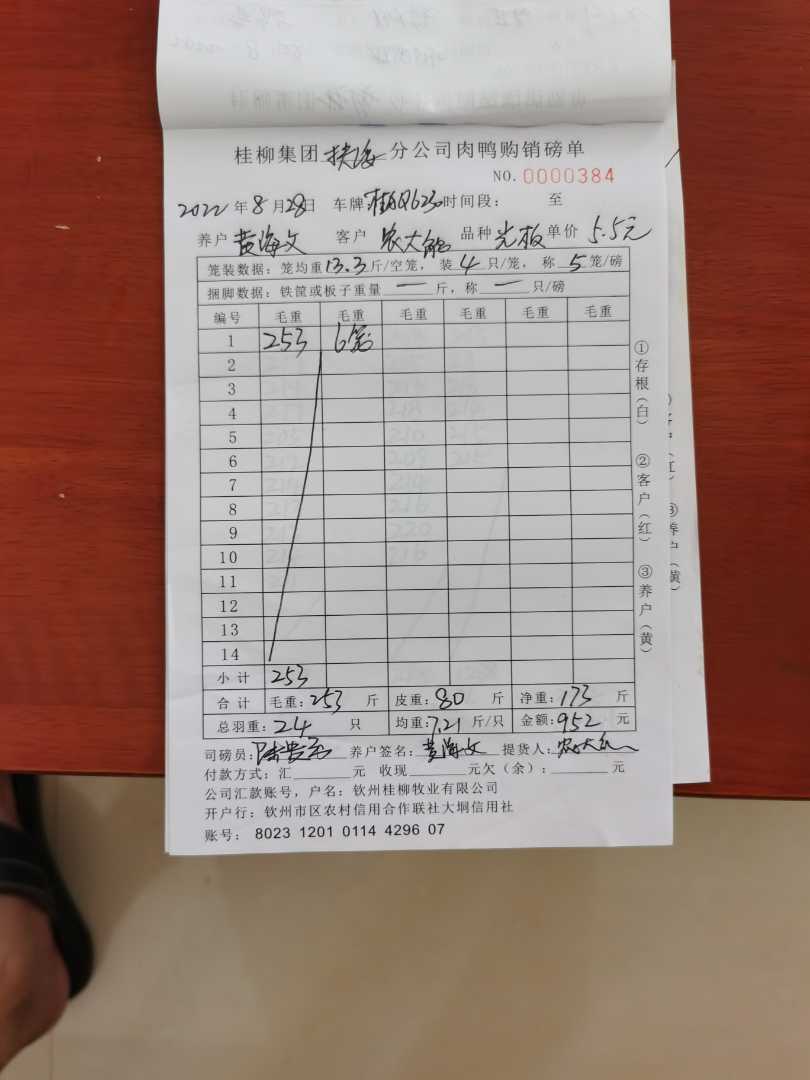 桂柳集团扶海分公司肉鸭购销磅单
NO. 0000384
2022年8月28日 车牌:桂AQ623 时间段: 至
养户黄海文 客户农大能 品种光板 单价5.5元
笼装数据:笼均重13.3斤/空笼,装4只/笼,称5笼/磅
捆脚数据:铁筐或板子重量一斤,称一只/磅
编号 毛重 毛重 毛重 毛重 毛重 毛重
1 253 6笼
2
3
4
5
6
7
8
9
10
11
12
13
14
小计 253
合计 毛重:253斤 皮重:80斤 净重:173斤
总羽重:24只 均重:7.21斤/只 金额:952元
司磅员: 养户签名:黄海文 提货人:农大
付款方式:汇 元 收现 元欠(余): 元
公司汇款账号,户名:钦州桂柳牧业有限公司
开户行:钦州市区农村信用合作联社大垌信用社
账号:8023 1201 0114 4296 07
①存根(白) ②客户(红) ③养户(黄)